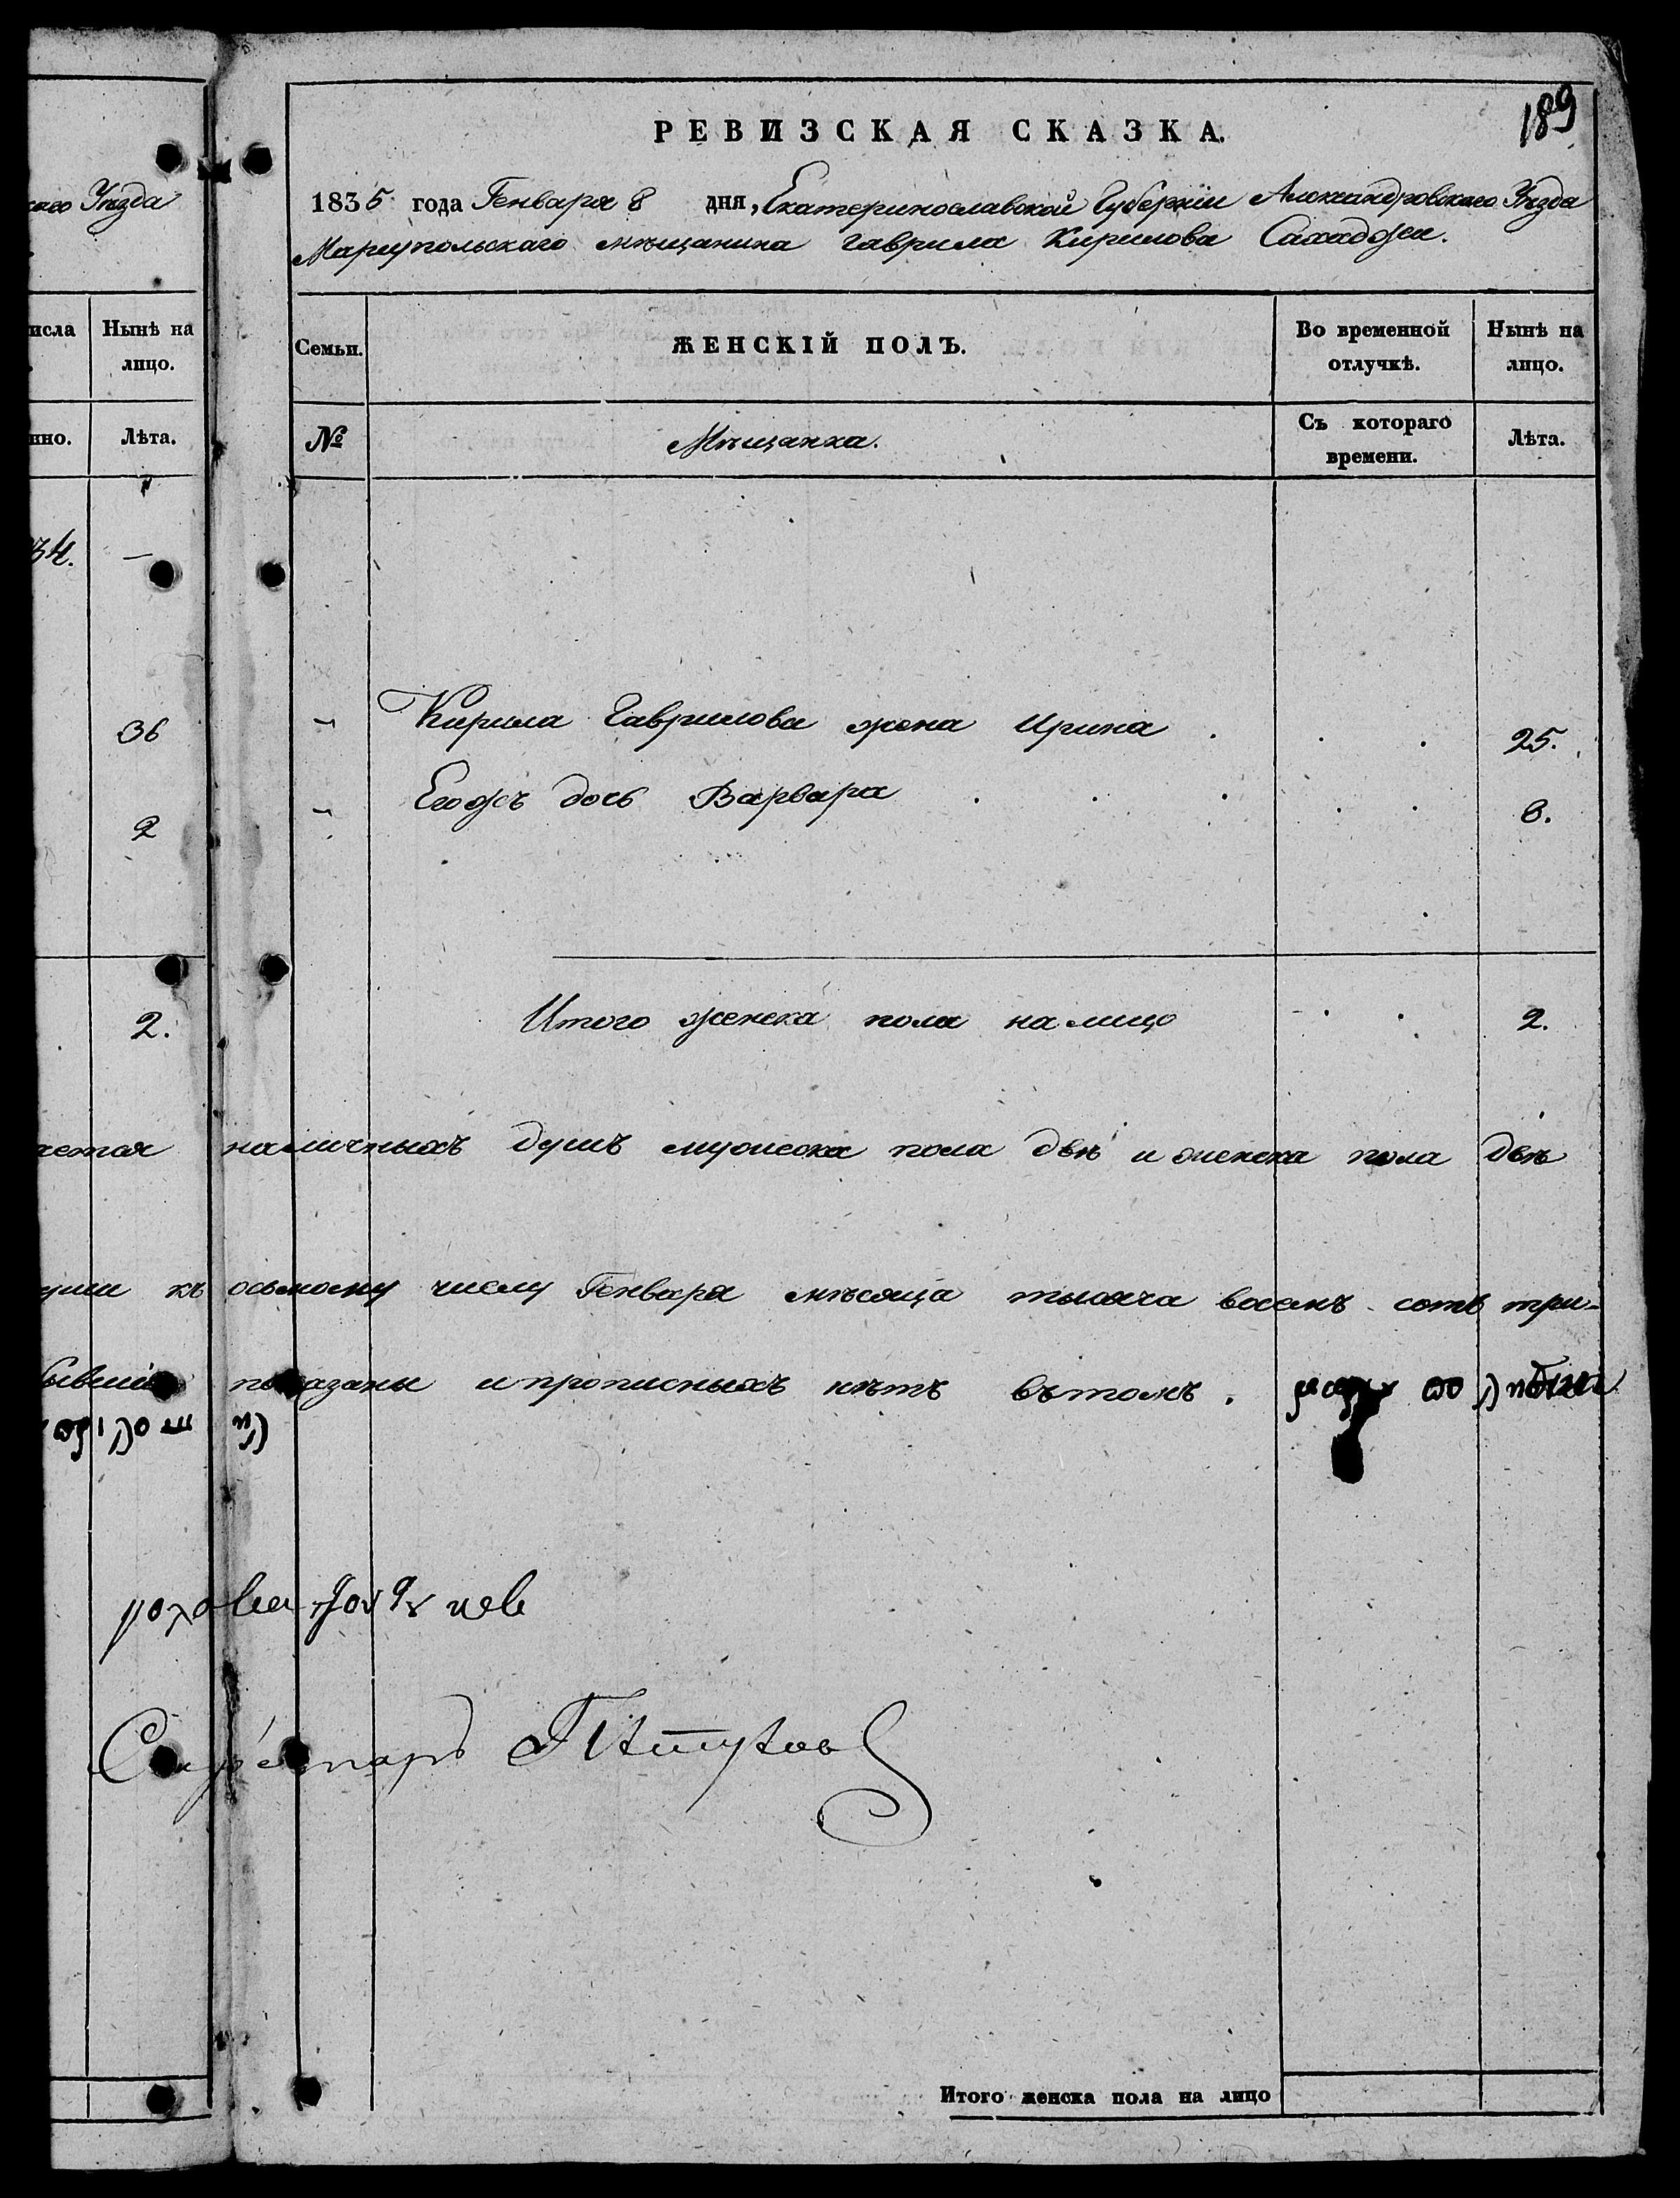 189
РЕВИЗСКАЯ СКАЗКА.
1835 года Генваря 8 дня, Екатеринославской Губерніи Александровскаго Уѣзда
Мариупольскаго мѣщанина Гаврила Кирилова
Уѣзда
исла Нынѣ на лицо.
нно. Лѣта.
34. —
36
2
2.
Семьи. ЖЕНСКІЙ ПОЛЪ. Во временной отлучкѣ. Нынѣ на лицо.
№ Мѣщанка. Съ котораго времени. Лѣта.
Кирила Гаврилова жена Ирина 25.
Егожъ дочь Варвара 8.
Итого женска пола на лицо 2.
наличныхъ душъ мужеска пола двѣ и женска пола двѣ
къ осьмому числу Генваря мѣсяца тысяча восемъ сотъ три-
показаны и прописныхъ нѣтъ вътомъ.
Секретарь
Итого женска пола на лицо